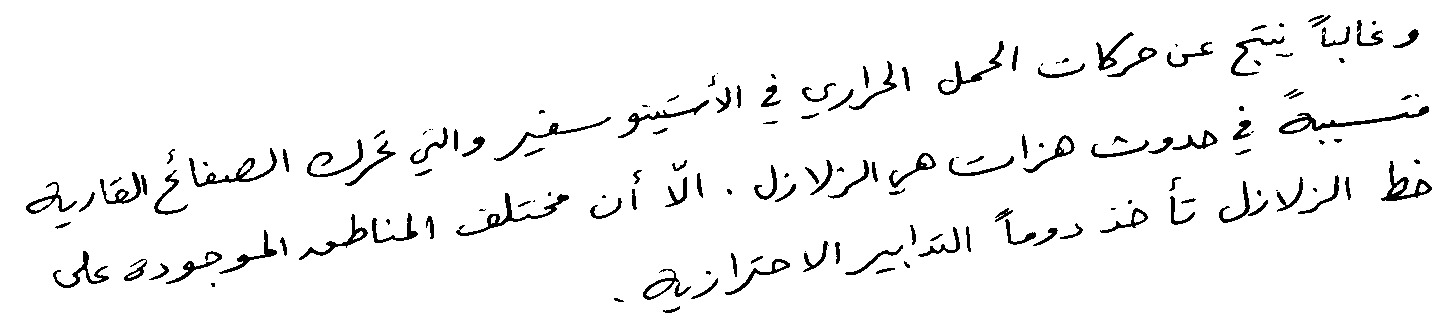 وغالباً ينتج عن حركات الحمل الحراري في الأستينوسفير والتي تحرك الصفائح القارية
متسببةً في حدوث هزات هي الزلازل . الّا أن مختلف المناطق الموجودة على
خط الزلازل تأخذ دوماً التدابير الاحترازية .